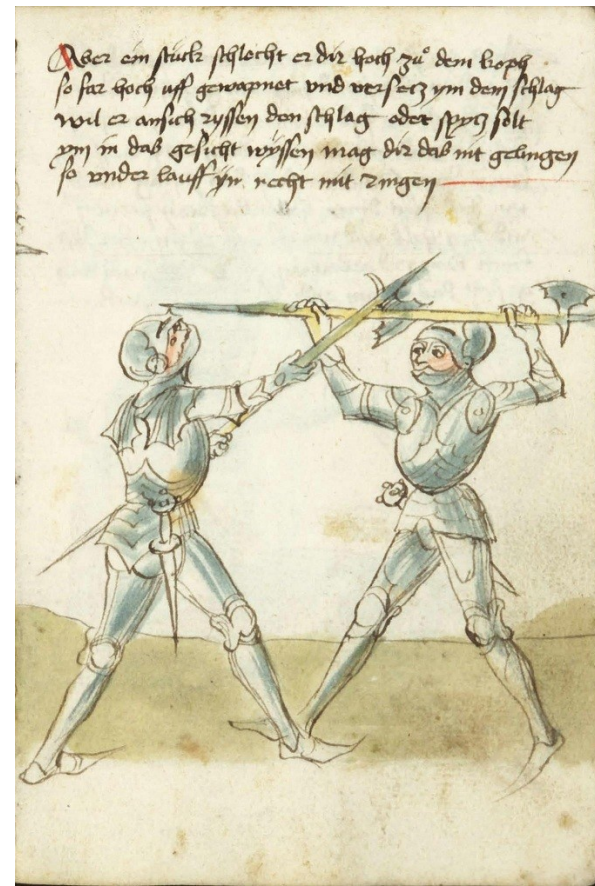 Aber ein stuck schlecht er dir hoch zů dem koph
so far hoch uff gewapnet vnd versecz ym dem schlag
wil er ansich ryssen den schlag oder spycz solt
ym in das gesicht wyssen mag dir das nit gelingen
so vnder lauff yn recht mit ringen